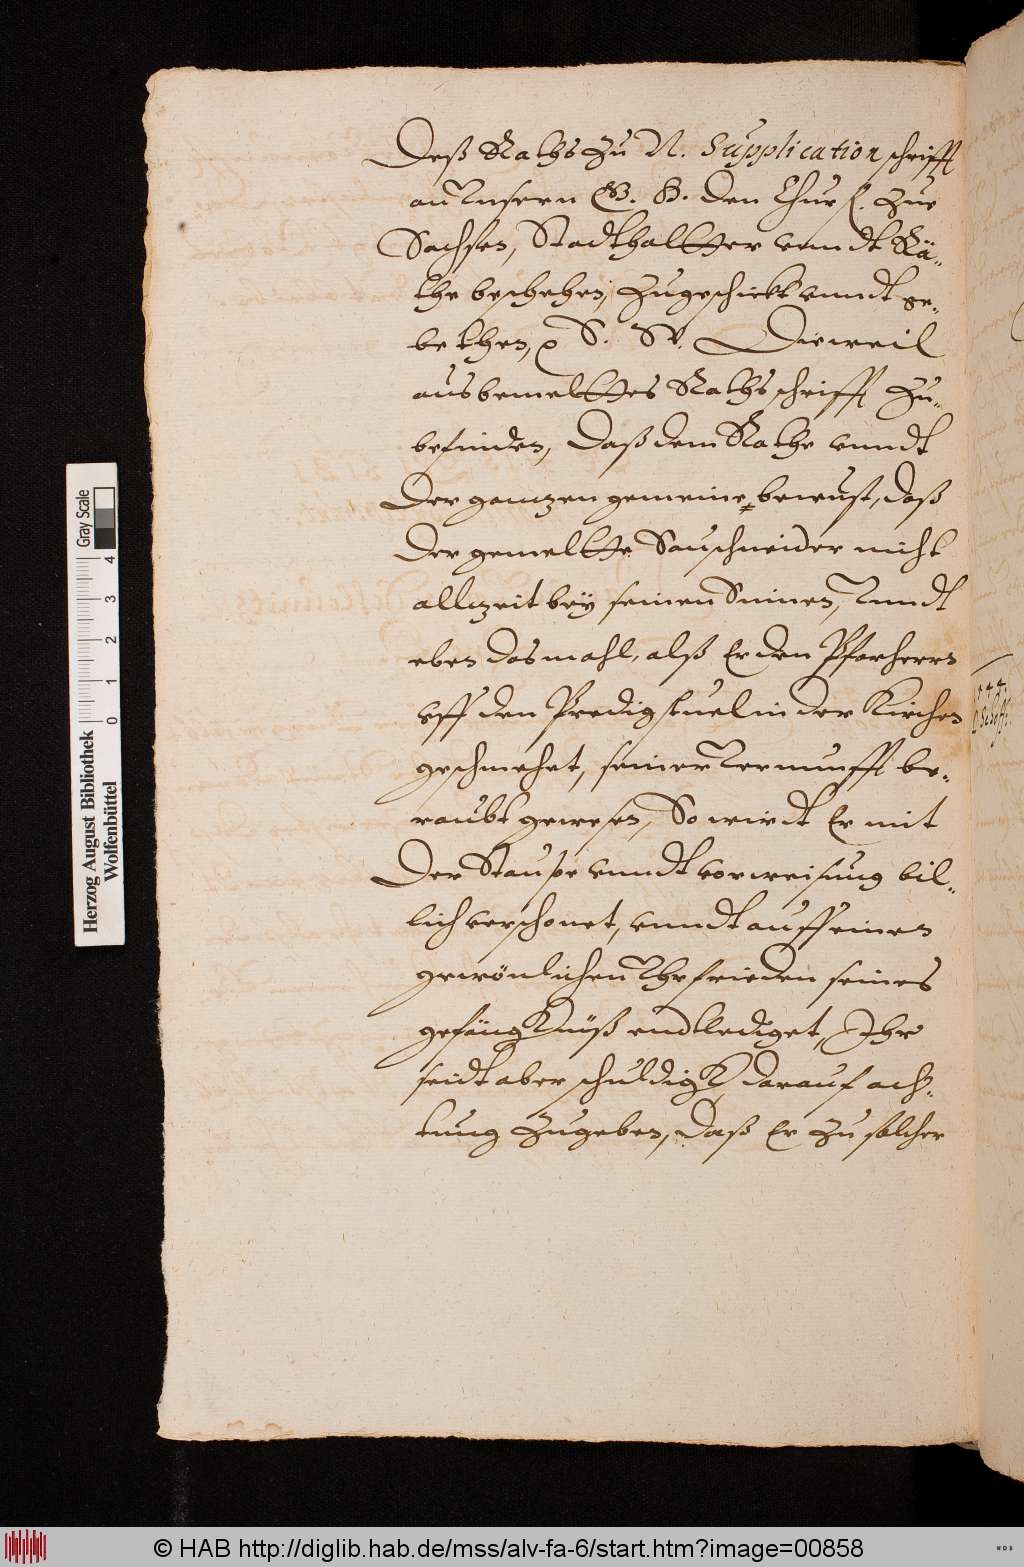 Deß Raths Zu N. Supplication schrifft
an Unsern G. H. den Churf. Zue
Sachsen, Stadthallter unndt Rä-
the beschehen, Zugeschickt unndt ge-
bethen, S. W. Dieweil
aus bemelltes Raths schrifft Zu-
befinden, Daß dem Rathe unndt
Der gantzen gemeine bewust, daß
Der gemellte Sauschneider nicht
allezeit beÿ seinen Sinnen, Unndt
eben das mahl, alß Er den Pfarherrn
uff den Predigstuel in der Kirchen
geschmehet, seiner Vernunfft be-
raubt gewesen, So wirdt Er mit
Der Staupe unndt vorweisung bil-
lich verschonet, unndt auff einen
gewönlichen Uhrfrieden seines
gefängknüß endtlediget, Ihr
seidt aber schuldigk darauf ach-
tung Zugeben, Daß Er Zu solcher
Herzog August Bibliothek
Wolfenbüttel
0 1 2 3 4
Gray Scale
© HAB http://diglib.hab.de/mss/alv-fa-6/start.htm?image=00858
WDB